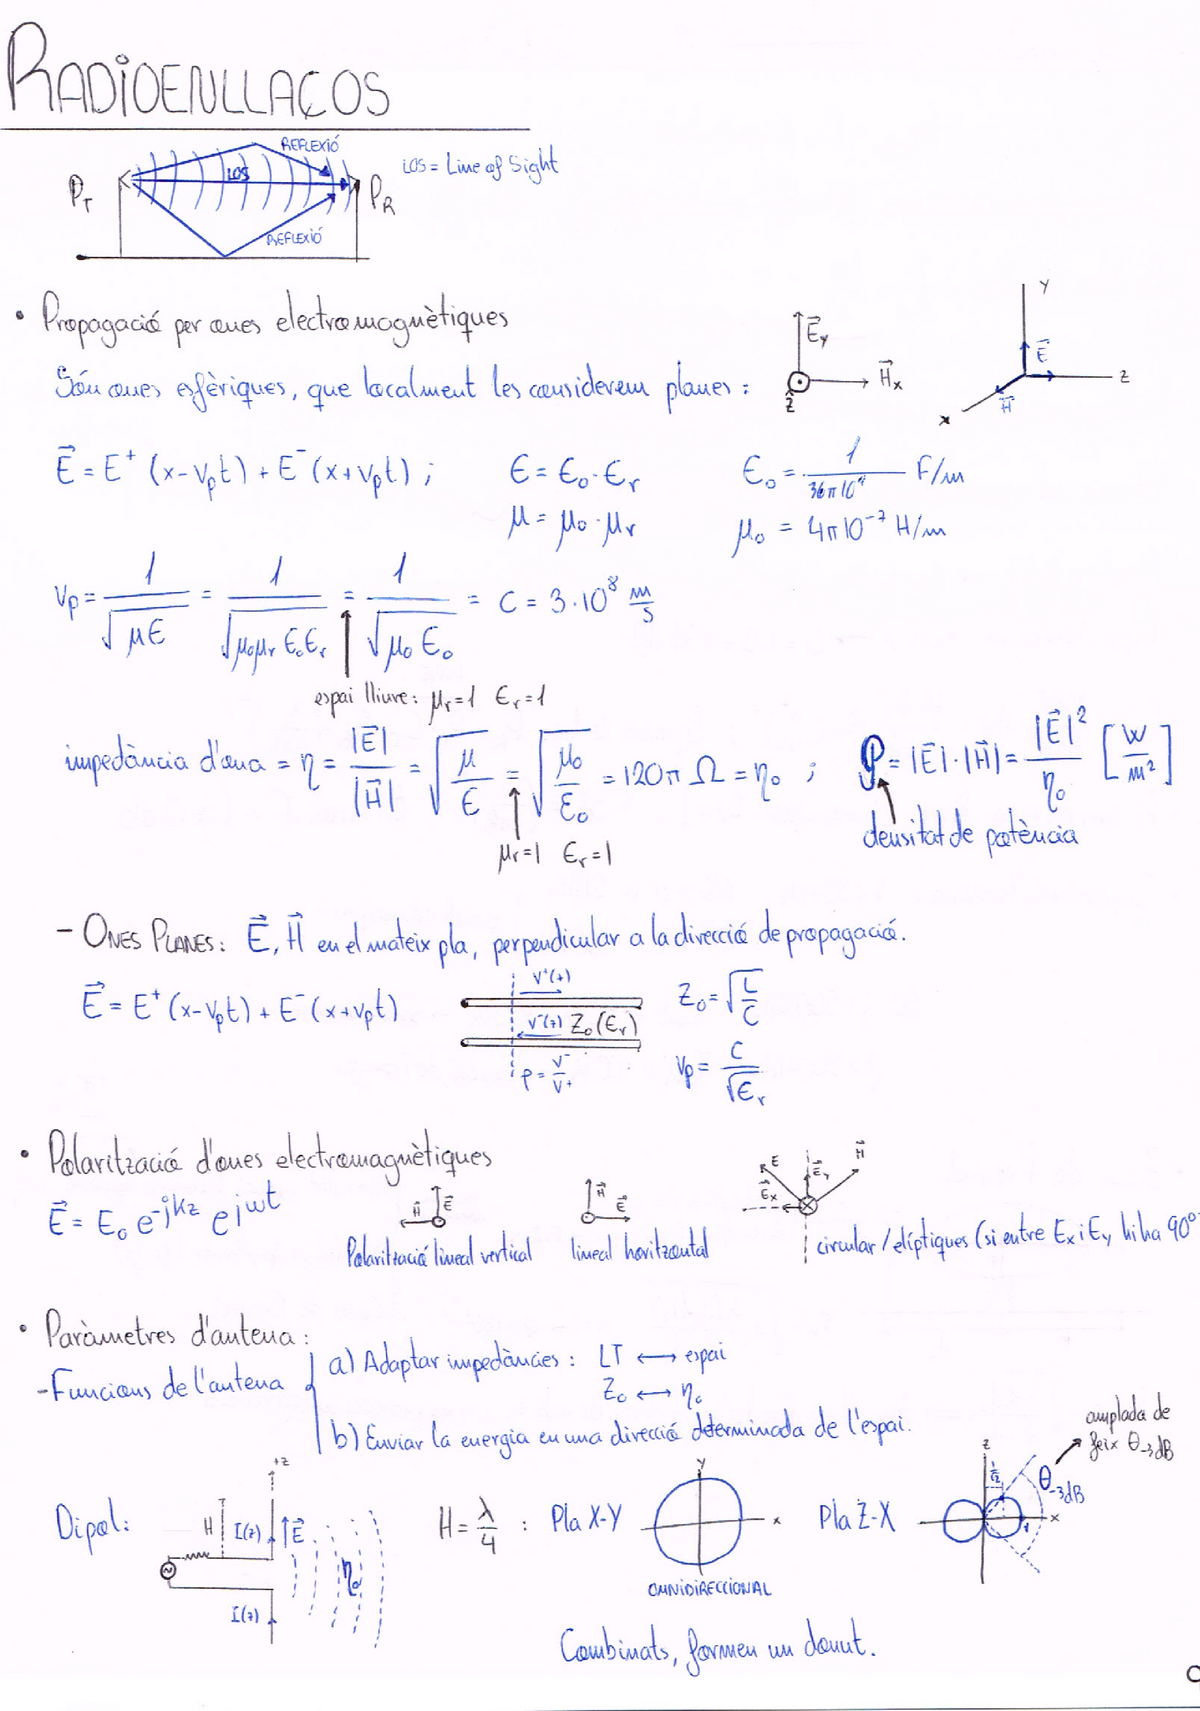 RADIOENLLAÇOS
REFLEXIÓ
LOS
LOS = Line of Sight
P_T
P_R
REFLEXIÓ
• Propagació per ones electromagnètiques
Són ones esfèriques, que localment les considerem planes :
E⃗_y
H⃗_x
ẑ
Y
E⃗
Z
H⃗
x
E⃗ = E⁺ (x-v_p t) + E⁻ (x+v_p t) ;
Є = Є₀ · Є_r
Є₀ = 1/(36π10⁹) F/m
μ = μ₀ · μ_r
μ₀ = 4π10⁻⁷ H/m
v_p = 1/√(μЄ) = 1/√(μ₀μ_r Є₀Є_r) = 1/√(μ₀Є₀) = C = 3·10⁸ m/s
espai lliure: μ_r=1 Є_r=1
impedància d'ona = η = |E⃗|/|H⃗| = √(μ/Є) = √(μ₀/Є₀) = 120π Ω = η₀ ;
P = |E⃗|·|H⃗| = |E⃗|²/η₀ [W/m²]
μ_r=1 Є_r=1
densitat de potència
- ONES PLANES: E⃗, H⃗ en el mateix pla, perpendicular a la direcció de propagació.
E⃗ = E⁺ (x-v_p t) + E⁻ (x+v_p t)
V⁺(z)
V⁻(z) Z₀(Є_r)
ρ = V⁻/V⁺
Z₀ = √(L/C)
v_p = C/√Є_r
• Polarització d'ones electromagnètiques
E⃗ = E₀ e^-jkz e^jωt
H⃗ E⃗
Polarització lineal vertical
H⃗ E⃗
lineal horitzontal
E
E⃗_x
E⃗_y
H⃗
circular/elíptiques (si entre E_x i E_y hi ha 90º
• Paràmetres d'antena :
- Funcions de l'antena
a) Adaptar impedàncies : LT ↔ espai
Z₀ ↔ η₀
b) Enviar la energia en una direcció determinada de l'espai.
Dipol:
+z
H
I(z)
E⃗
η₀
I(z)
H = λ/4 :
Pla X-Y
Y
x
OMNIDIRECCIONAL
Pla Z-X
z
1/√2
x
1
θ_-3dB
amplada de
feix θ_-3dB
Combinats, formen un donut.
9